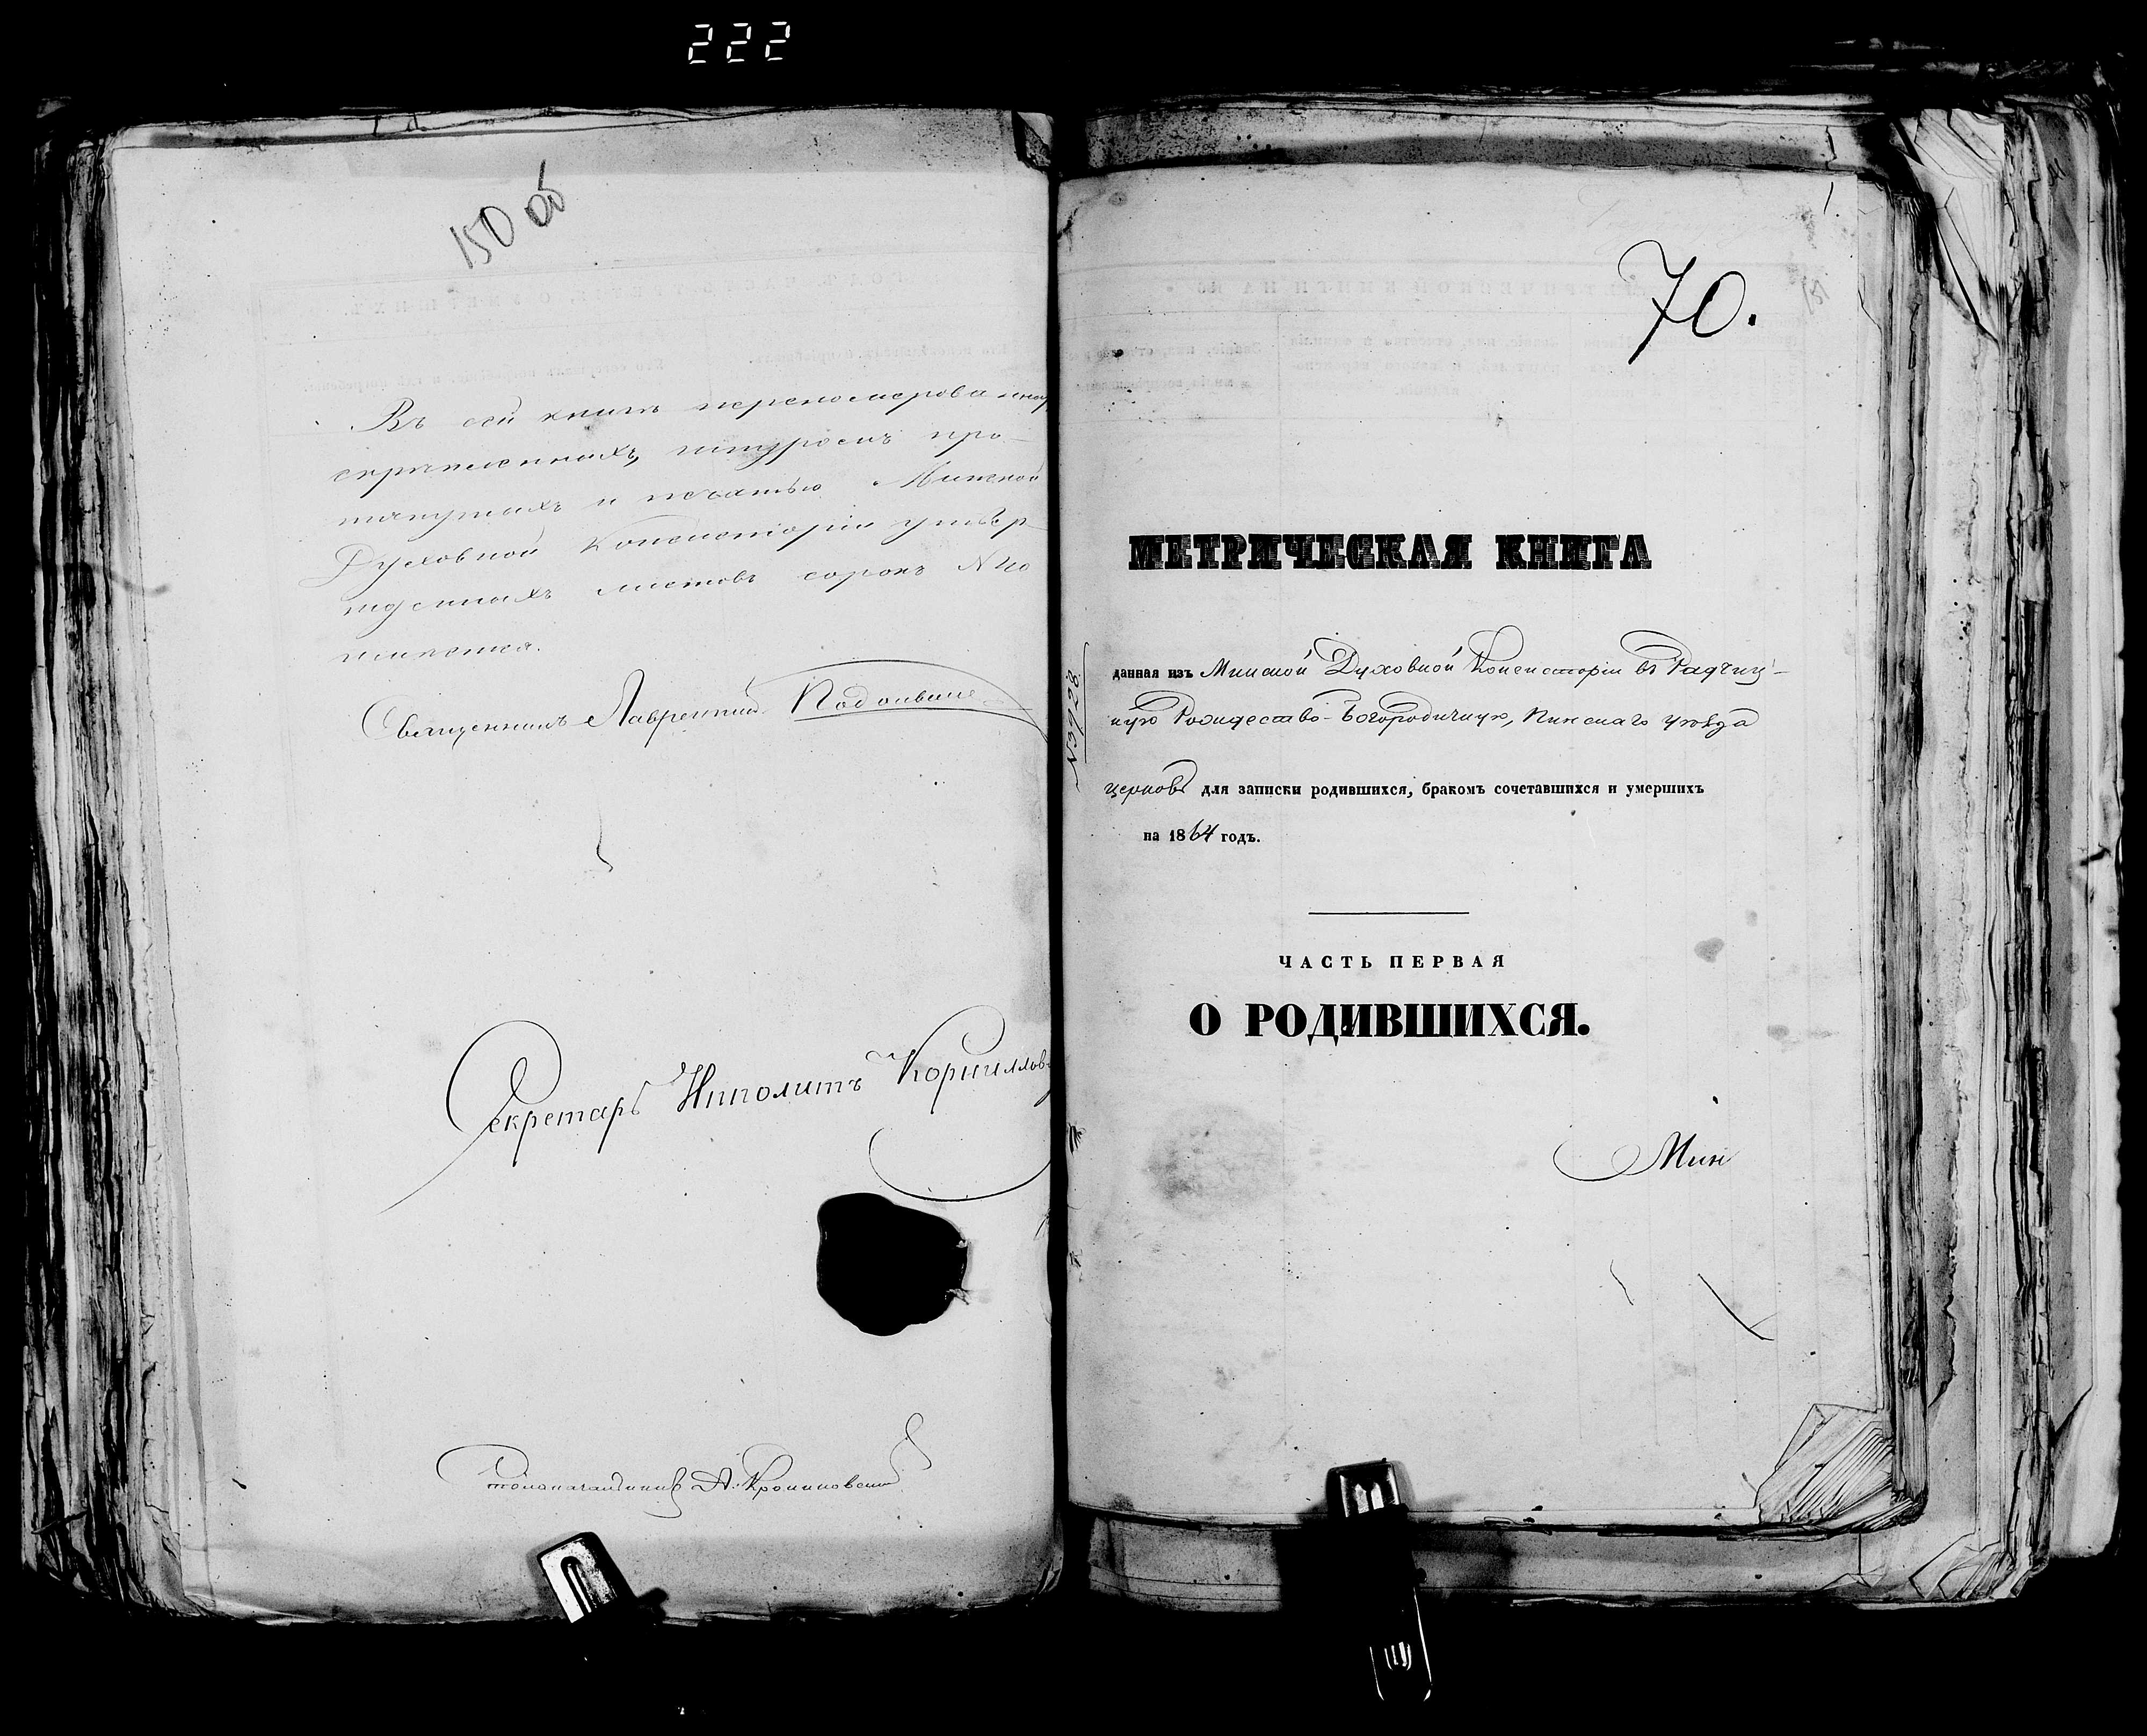 222
150 об
Въ сей книгѣ переномерованных
скрѣпленныхъ, шнуромъ про-
тянутыхъ и печатью Минской
Духовной Консисторіи утвер-
жденныхъ листовъ сорокъ N 40
Священникъ Лаврентій
Секретарь Ипполитъ Корнилов
Столоначальникъ А.
1.
70.
151
N 3928.
МЕТРИЧЕСКАЯ КНИГА
данная изъ Минской Духовной Консисторіи въ Радчиц-
кую Рождество-Богородичную, Пинскаго уѣзда
церковь для записки родившихся, бракомъ сочетавшихся и умершихъ
на 1864 годъ.
ЧАСТЬ ПЕРВАЯ
О РОДИВШИХСЯ.
Мин